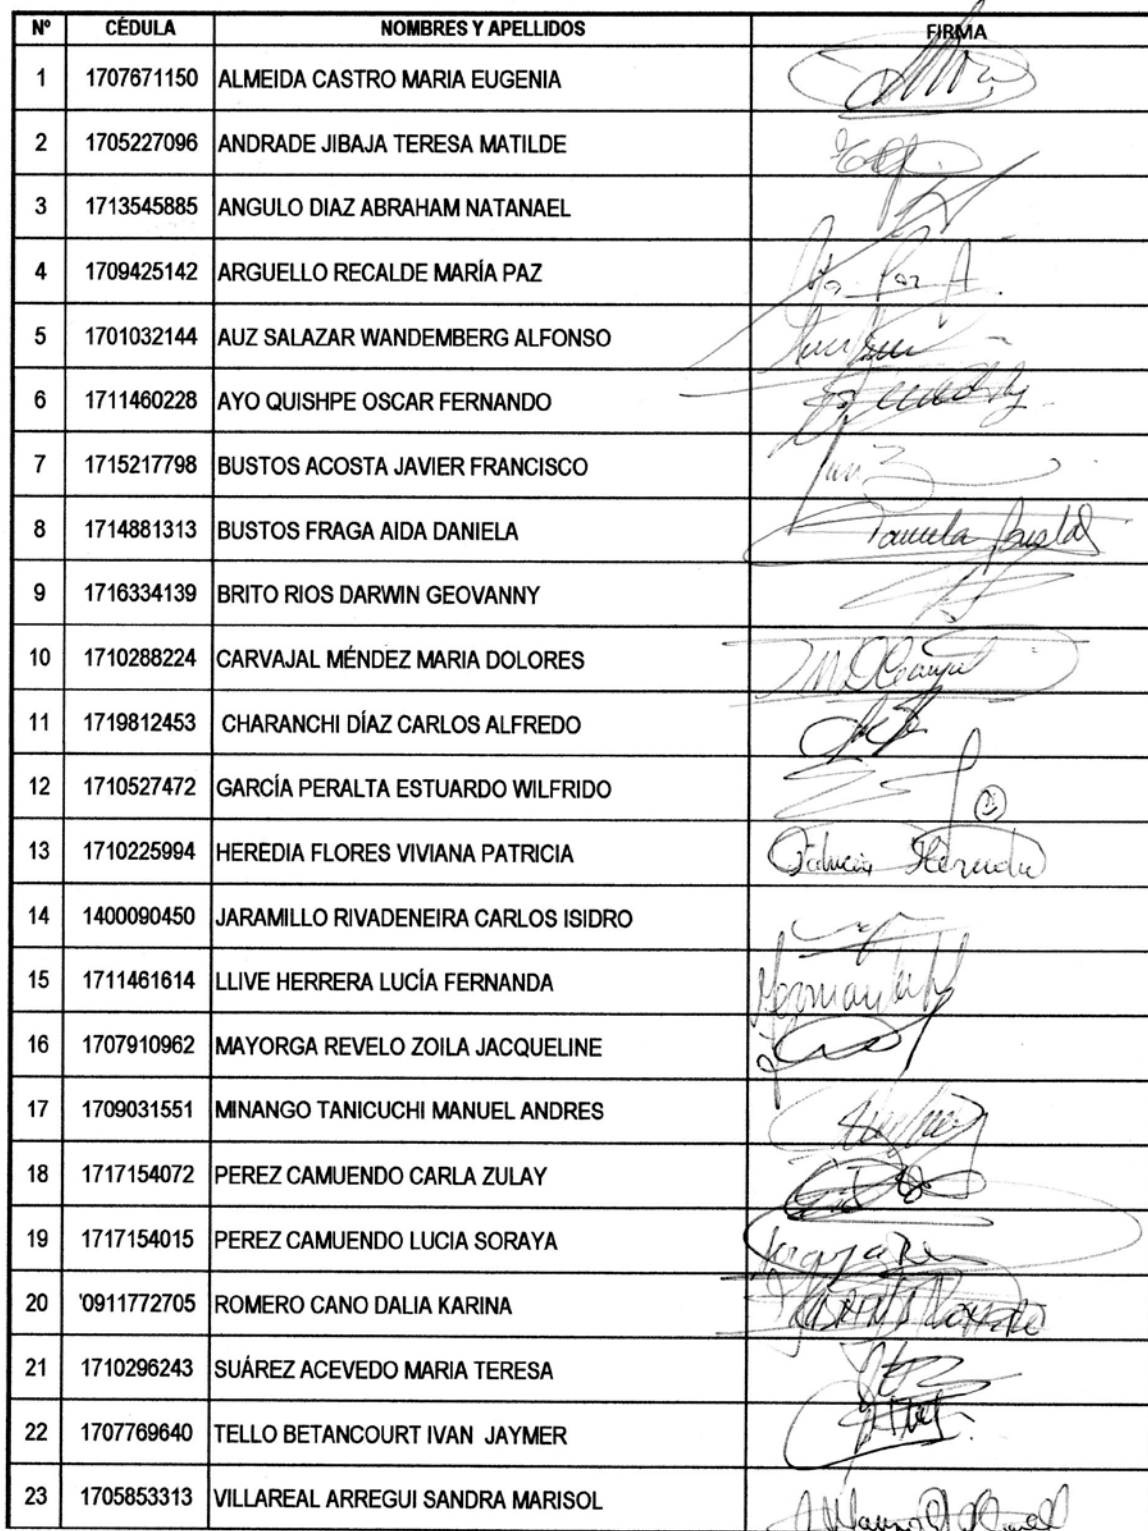 Nº CÉDULA NOMBRES Y APELLIDOS FIRMA
1 1707671150 ALMEIDA CASTRO MARIA EUGENIA
2 1705227096 ANDRADE JIBAJA TERESA MATILDE
3 1713545885 ANGULO DIAZ ABRAHAM NATANAEL
4 1709425142 ARGUELLO RECALDE MARÍA PAZ Mª Paz A.
5 1701032144 AUZ SALAZAR WANDEMBERG ALFONSO
6 1711460228 AYO QUISHPE OSCAR FERNANDO
7 1715217798 BUSTOS ACOSTA JAVIER FRANCISCO
8 1714881313 BUSTOS FRAGA AIDA DANIELA Daniela Bustos
9 1716334139 BRITO RIOS DARWIN GEOVANNY
10 1710288224 CARVAJAL MÉNDEZ MARIA DOLORES
11 1719812453 CHARANCHI DÍAZ CARLOS ALFREDO
12 1710527472 GARCÍA PERALTA ESTUARDO WILFRIDO
13 1710225994 HEREDIA FLORES VIVIANA PATRICIA Patricia Heredia
14 1400090450 JARAMILLO RIVADENEIRA CARLOS ISIDRO
15 1711461614 LLIVE HERRERA LUCÍA FERNANDA
16 1707910962 MAYORGA REVELO ZOILA JACQUELINE
17 1709031551 MINANGO TANICUCHI MANUEL ANDRES
18 1717154072 PEREZ CAMUENDO CARLA ZULAY
19 1717154015 PEREZ CAMUENDO LUCIA SORAYA
20 '0911772705 ROMERO CANO DALIA KARINA
21 1710296243 SUÁREZ ACEVEDO MARIA TERESA
22 1707769640 TELLO BETANCOURT IVAN JAYMER
23 1705853313 VILLAREAL ARREGUI SANDRA MARISOL